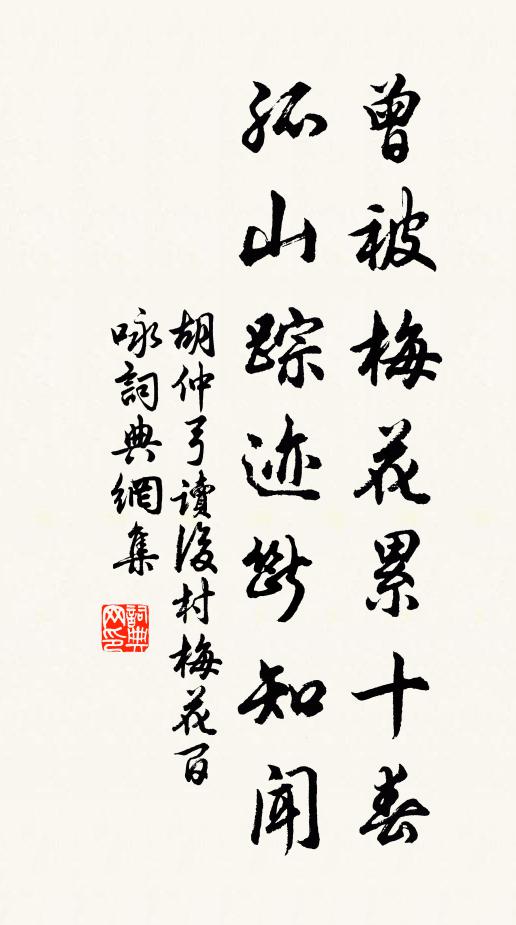 曾被梅花累十春
孤山踪迹断知闻
胡仲弓讀後村梅花百
咏詞典網集
詞典网印